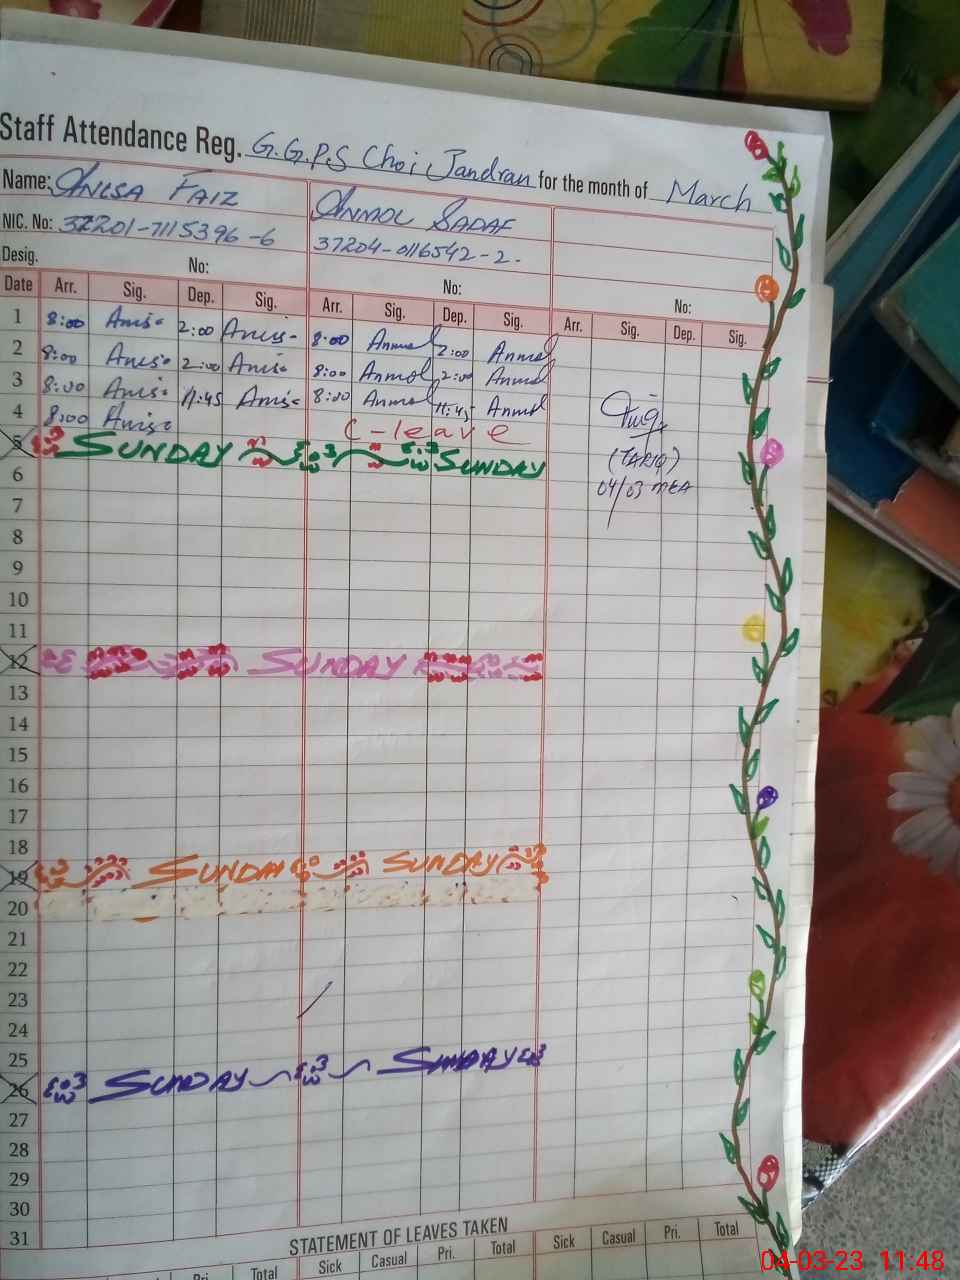 Staff Attendance Reg. G.G.P.S Choi Jandran for the month of March
Name: Anisa Faiz Anmol Sadaf
NIC. No: 37201-7115396-6 37204-0116542-2.
Desig. No: No: No:
Date Arr. Sig. Dep. Sig. Arr. Sig. Dep. Sig. Arr. Sig. Dep. Sig.
1 8:00 Anis. 2:00 Anis. 8:00 Anmol 2:00 Anmol
2 8:00 Anis. 2:00 Anis. 8:00 Anmol 2:00 Anmol
3 8:00 Anis. 11:45 Anis. 8:00 Anmol 11:45 Anmol
4 8:00 Anis. C-leave
5 SUNDAY SUNDAY
(TARIQ)
04/03 MEA
6
7
8
9
10
11
12 SUNDAY
13
14
15
16
17
18
19 SUNDAY SUNDAY
20
21
22
23
24
25
26 SUNDAY SUNDAY
27
28
29
30
31
STATEMENT OF LEAVES TAKEN
Pri. Total Sick Casual Pri. Total Sick Casual Pri. Total
04-03-23 11:48